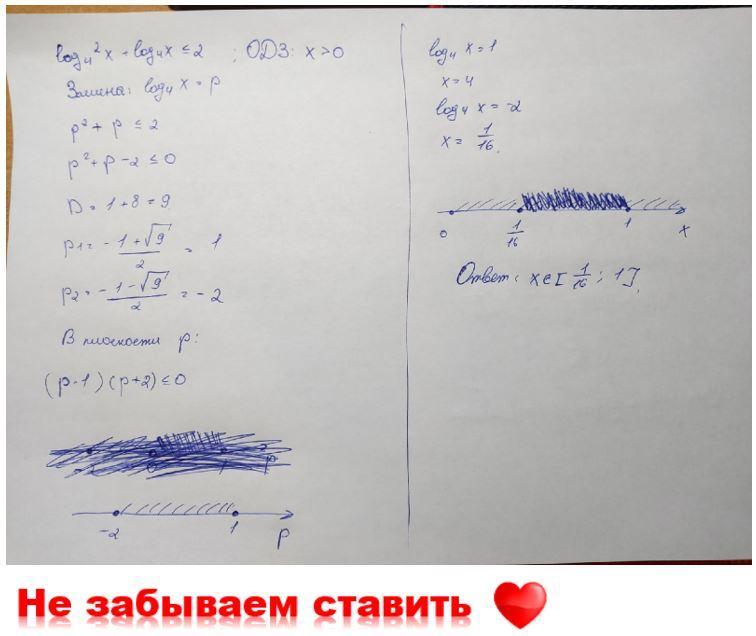 log₄²x + log₄x ≤ 2 ; ОДЗ: x > 0
Замина: log₄ x = p
p² + p ≤ 2
p² + p - 2 ≤ 0
D = 1 + 8 = 9
p1 = -1 + √9 / 2 = 1
p2 = -1 - √9 / 2 = -2
В плоскости p:
(p - 1)(p + 2) ≤ 0
-2 1 p
log₄ x = 1
x = 4
log₄ x = -2
x = 1/16.
0 1/16 1 x
Ответ: x ∈ [1/16; 1].
Не забываем ставить